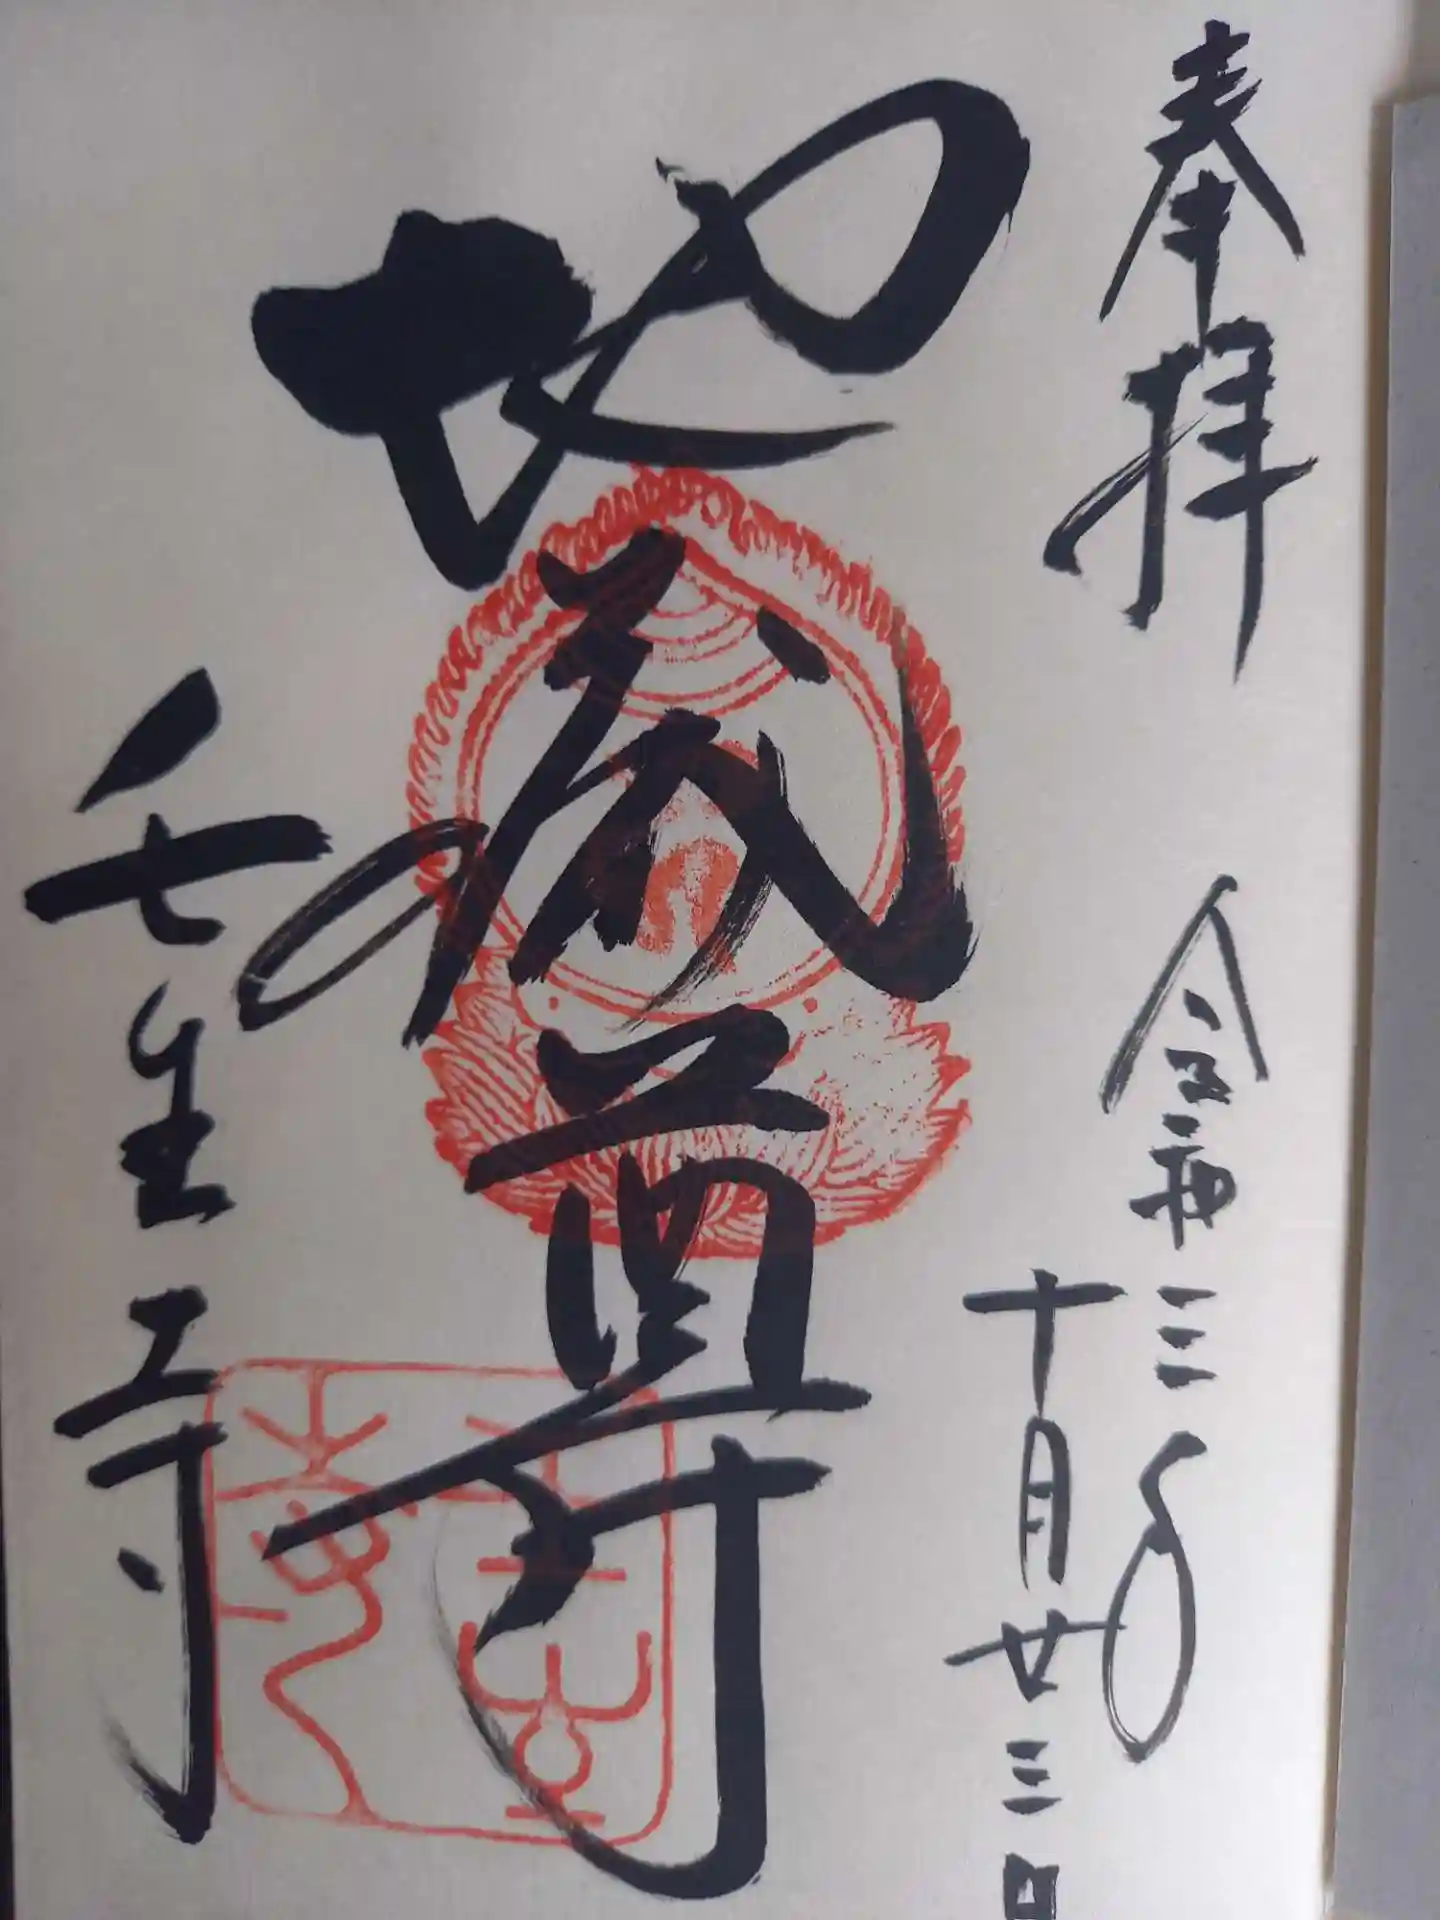 奉拝
令和三年
十月廿三日
地蔵尊
壬生寺